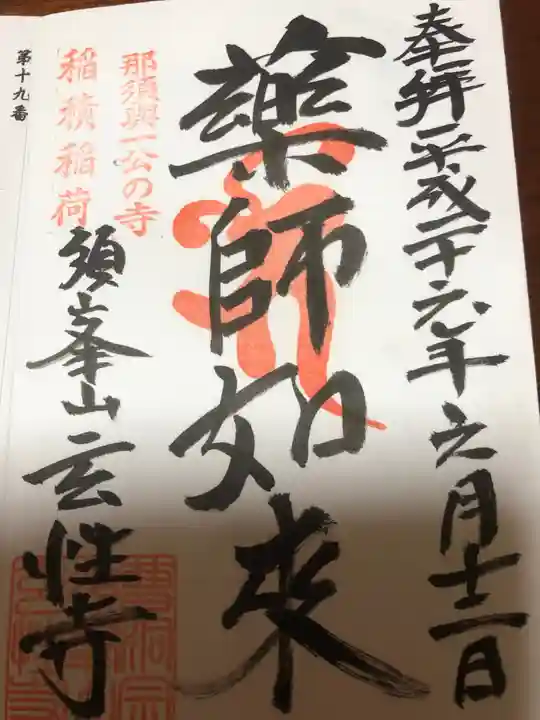 奉拝平成二十六年六月十二日
薬師如来
那須與一公の寺
稲積稲荷
須峯山玄性寺
第十九番